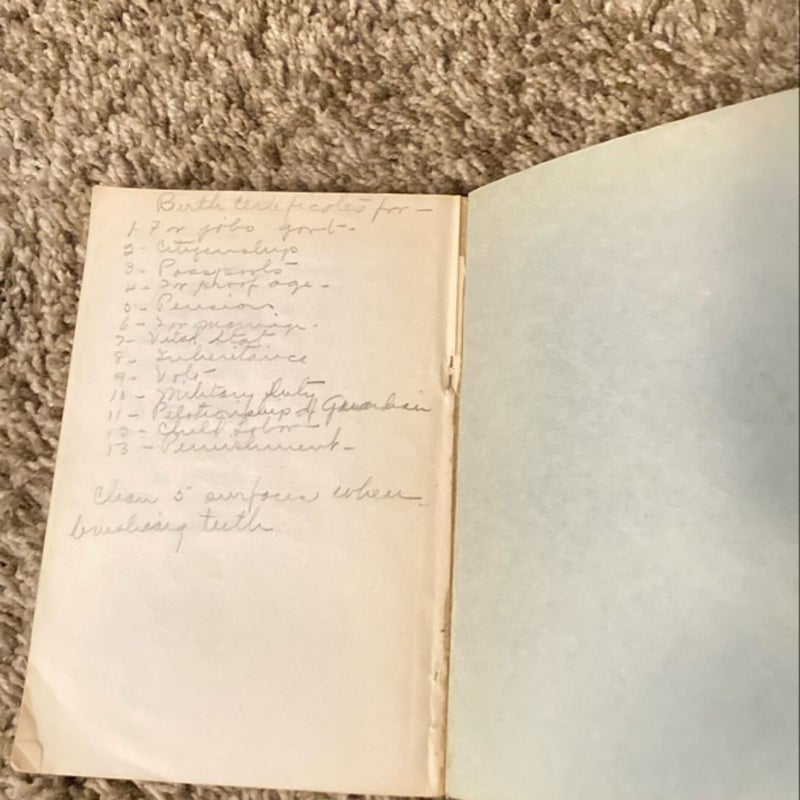 Birth Certificates for -
1 For jobs govt.
2- Citizenship
3- Passports
4- For proof age -
5- Pensions
6- For marriage.
7- Vital Stat
8- Inheritance
9- Vote
10- Military Duty
11- Relationship of Guardian
12- Child Labor
13- Punishment -
Clean 5 surfaces when
brushing teeth